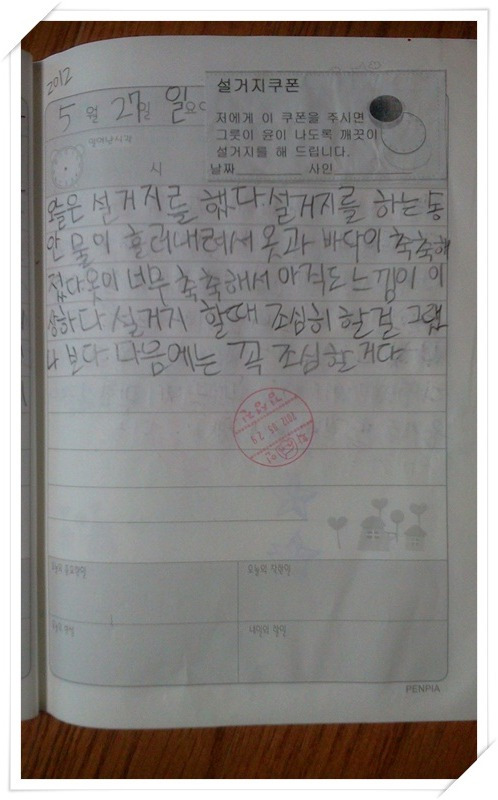 2012
5월 27일 일요
설거지쿠폰
저에게 이 쿠폰을 주시면
그릇이 윤이 나도록 깨끗이
설거지를 해 드립니다.
날짜 사인
시
오늘은 설거지를 했다. 설거지를 하는 동
안 물이 흘러내려서 옷과 바닥이 축축해
졌다 옷이 너무 축축해서 아직도 느낌이 이
상하다 설거지 할때 조심히 할걸 그랬
나 보다 다음에는 꼭 조심할거다
2012. 05. 29
오늘의 중요한일 오늘의 착한일
오늘의 반성 내일의 할일
PENPIA